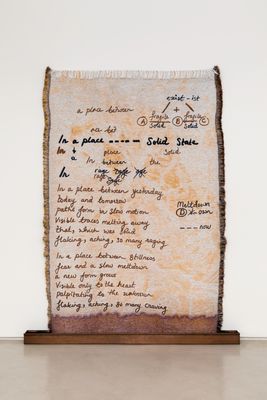 exist - ist
+
a place between
fragile fragile
A Solid B Solid C
In a place ----- Solid State
In a place Solid
In between the
In rage rage
In a place between yesterday
today and tomorrow
paths form in slow motion
Visible traces melting away
that, which was solid
flaking, aching, so many raging
Meltdown
D
--- now
In a place between Stillness
fear and a slow meltdown
a new form grows
Visible only to the heart
palpitating to the unknown
flaking, aching, so many craving